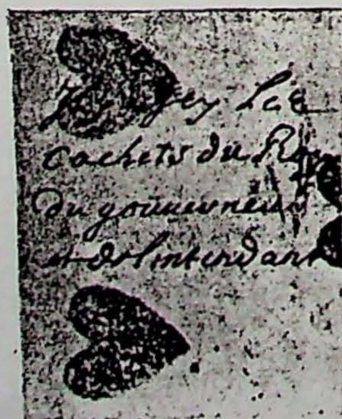 Les
cachets du Roy
Du gouuerneur
et de lintendant